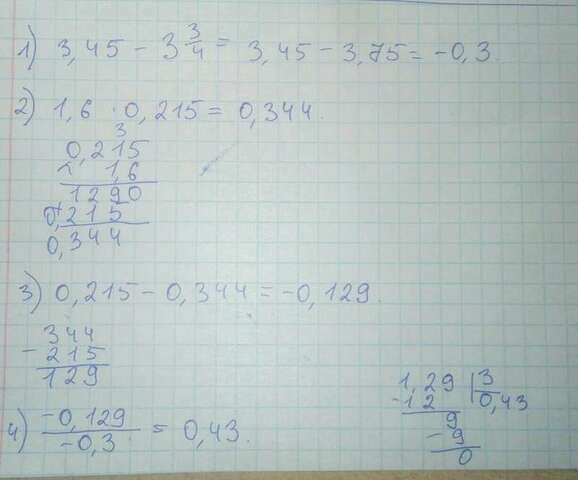 1) 3,45 - 3 3/4 = 3,45 - 3,75 = -0,3.
2) 1,6 · 0,215 = 0,344.
3
0,215
× 1,6
1290
+
0,215
0,344
3) 0,215 - 0,344 = -0,129.
344
- 215
129
4) -0,129 / -0,3 = 0,43.
1,29 | 3
-1 2 | 0,43
9
- 9
0